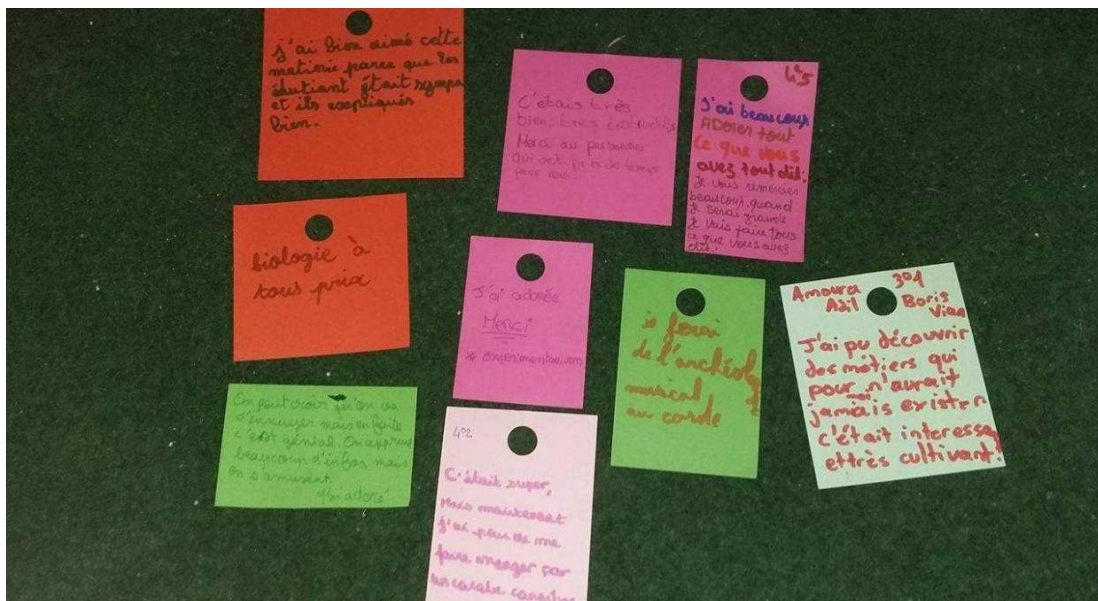 j'ai bien aimé cette
matinée parce que les
édutiant était sympa
et ils expliqués
bien.
C'étais très
bien, très
Merci au personnes
qui ont pris de temps
pour nous.
4°5
J'ai beaucoup
ADorer tout
ce que vous
avez tout dit:
je vous remercier
beaucoup, quand
je serai grande
je vais faire tous
ce que vous avez
dit!
biologie à
tous prix
J'ai adorée
Merci
* experimentarium
je ferai
de l'archéolo
musical
au
Amoura 3°1
Azil Boris
Vian
J'ai pu découvrir
des métiers qui
pour moi n'aurait
jamais exister
c'était interessa
et très cultivant!
On peut croire qu'on va
s'ennuyer mais en faite
c'est génial. On apprend
beaucoup d'infos mais
on s'amusent.
J'ai adoré
4°2
C'était super,
Mais maintenant
j'ai peur de me
faire manger par
un carabe